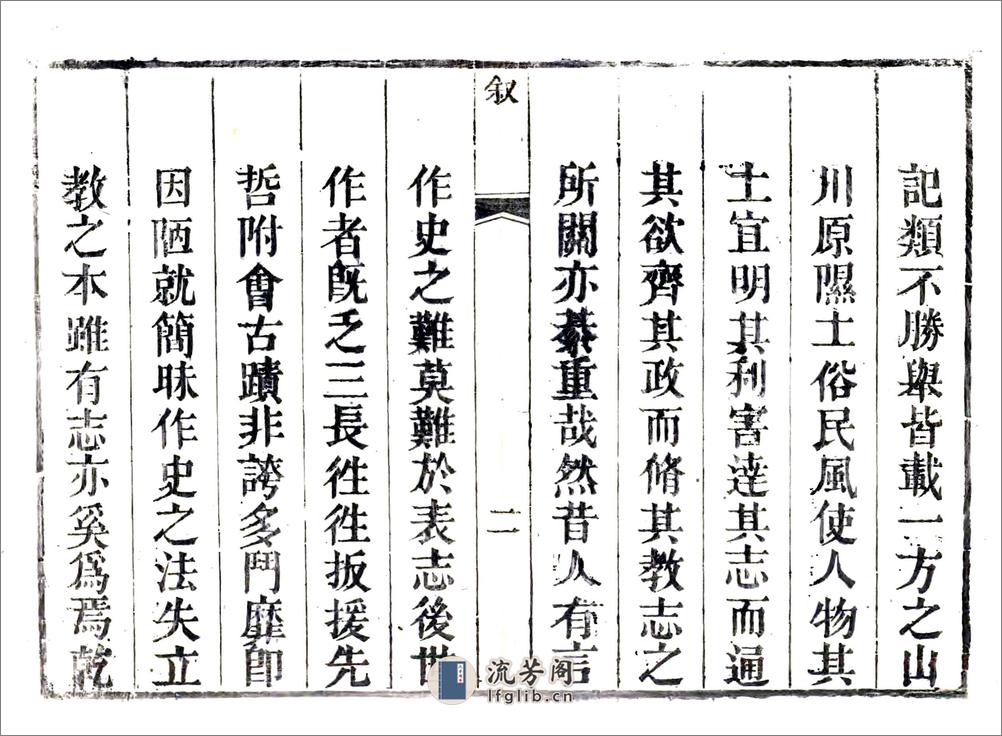 記類不勝舉皆載一方之山
川原隰土俗民風使人物其
土宜明其利害達其志而通
其欲齊其政而脩其教志之
所關亦綦重哉然昔人有言
叙
二
作史之難莫難於表志後世
作者旣乏三長徃徃扳援先
哲附會古蹟非誇多鬥靡卽
因陋就簡昧作史之法失立
教之本雖有志亦奚爲焉乾
流芳阁
lfglib.cn